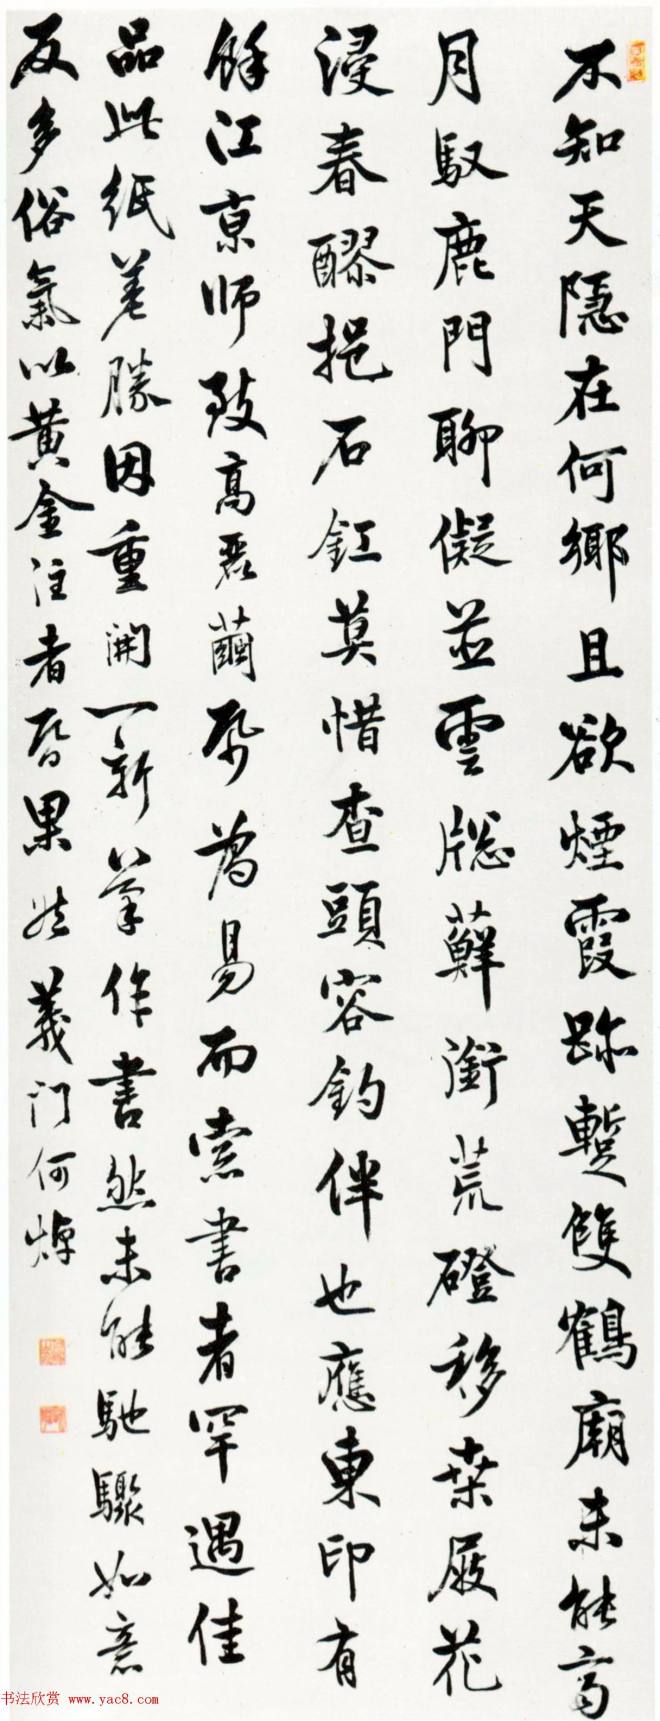 不知天隱在何鄉且欲煙霞跡蹔雙鶴廟未能齊
月馭鹿門聊儗並雲牕蘚銜荒磴移桒屐花
浸春醪挹石釭莫惜查頭容釣伴也應東印有
餘江京師致高麗繭帋為易而索書者罕遇佳
品此紙差勝因重開一新筆作書然未能馳驟如意
反多俗氣以黃金注者昏果然義門何焯
书法欣赏 www.yac8.com